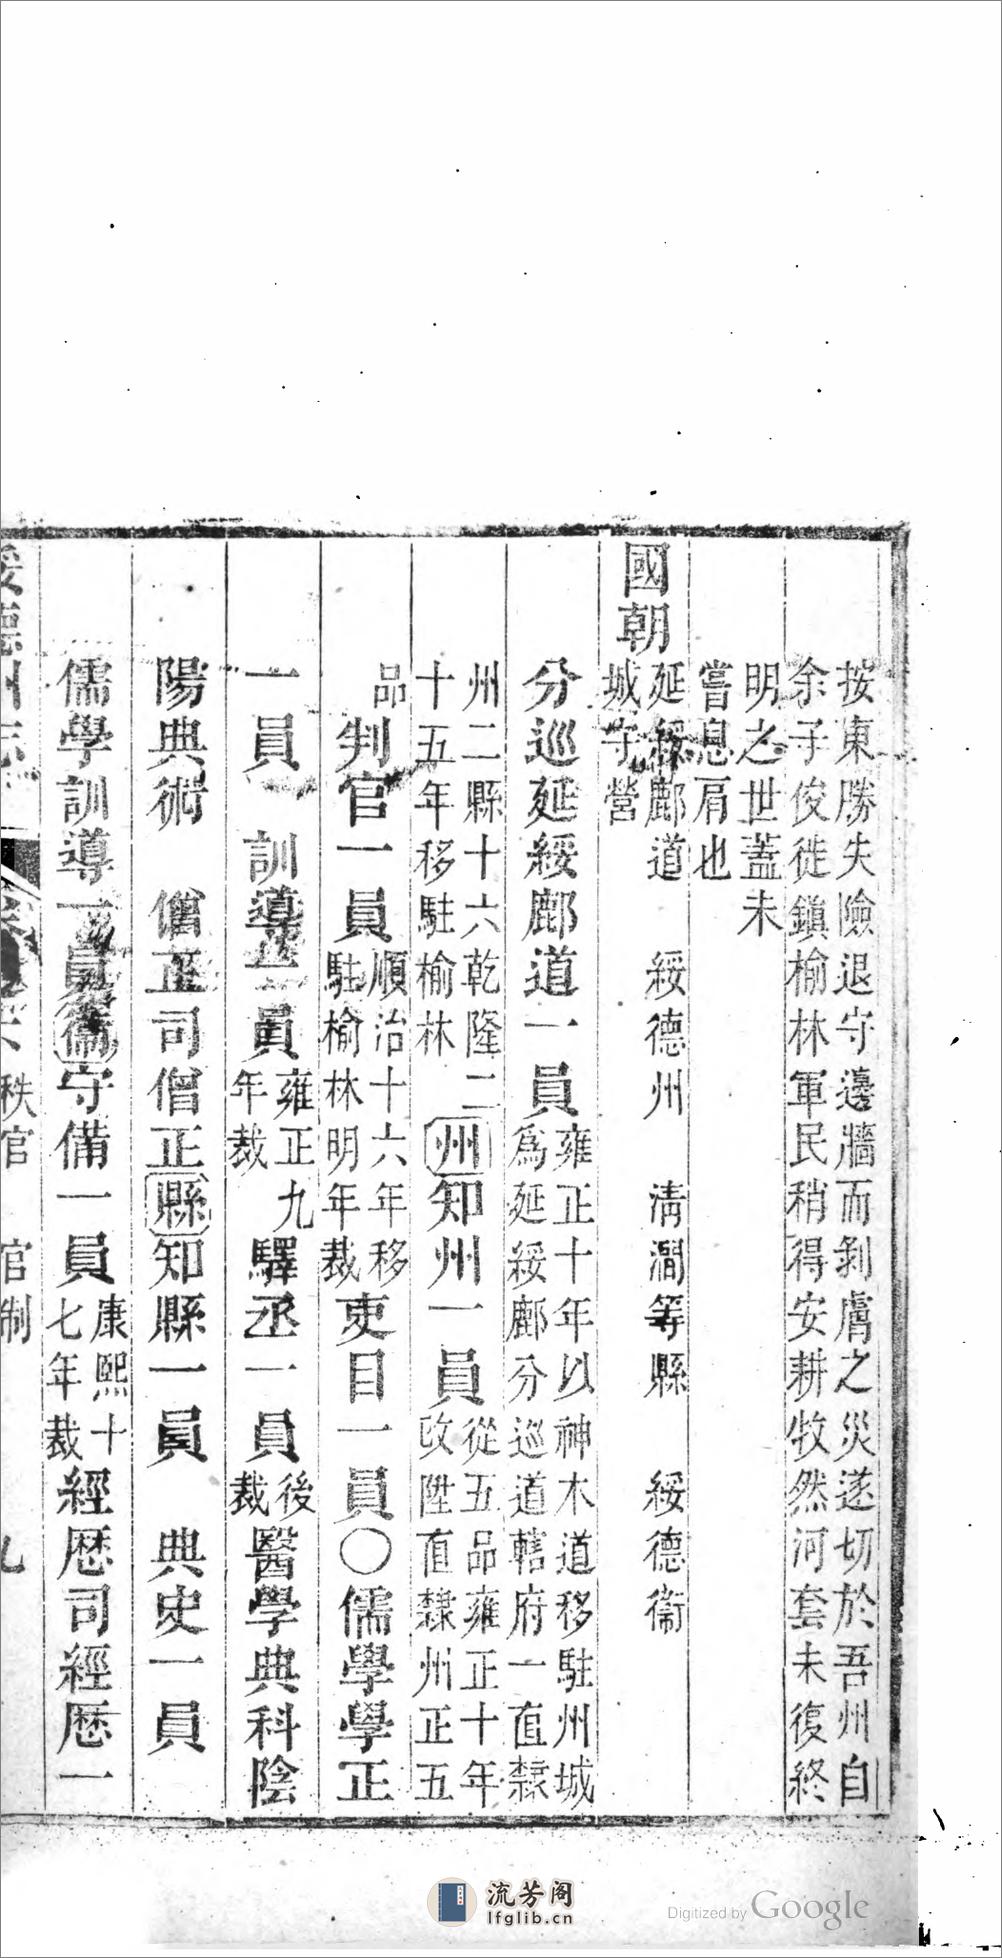 按東勝失險退守邊牆而剝膚之災遂切於吾州自
余子俊徙鎭榆林軍民稍得安耕牧然河套未復終
明之世蓋未
嘗息肩也
國朝
延綏鄜道　綏德州　淸澗等縣　綏德衞
城守營
分巡延綏鄜道一員
雍正十年以神木道移駐州城
爲延綏鄜分巡道轄府一直隸
州二縣十六乾隆二
十五年移駐榆林
州知州一員
從五品雍正十年
改陞直隸州正五
品
判官一員
順治十六年移
駐榆林明年裁
吏目一員〇儒學學正
一員　訓導一員
雍正九
年裁
驛丞一員
後
裁
醫學典科陰
陽典術　僧正司僧正縣知縣一員　典史一員
儒學訓導一員衞守備一員
康熙十
七年裁
經歷司經歷一
綏德州志
秩官　官制
九
流芳阁
lfglib.cn
Digitized by Google